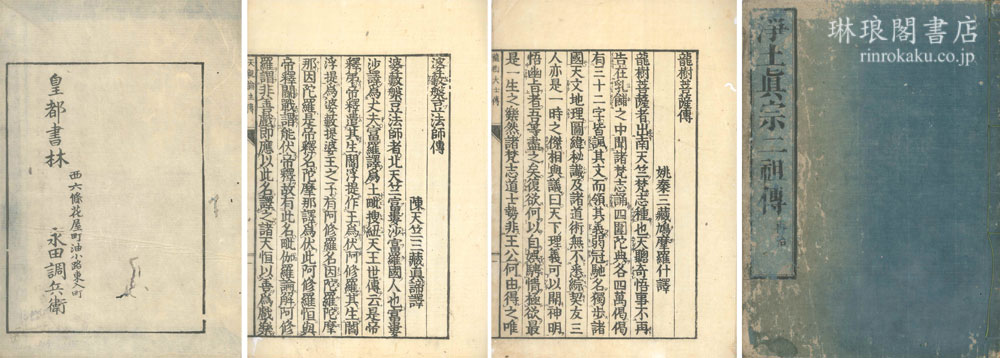 皇都書林
西六條花屋町油小路東入町
永田調兵衛
婆藪槃豆法師傳
陳天竺三藏眞諦譯
婆藪槃豆法師者北天竺富婁沙富羅國人也富婁
沙譯爲丈夫富羅譯爲土毗搜紐天王世傳云是帝
釋弟帝釋遣其生閻浮提作王爲伏阿修羅其生閻
浮提爲婆藪提婆王之子有阿修羅名因陀羅陀摩
那因陀羅是帝釋名陀摩那譯爲伏此阿修羅恒與
帝釋鬪戰謂能伏帝釋故有此名毗伽羅論解阿修
羅謂非善戲即應以此名譯之諸天恒以善爲戲樂
龍樹菩薩傳
姚秦三藏鳩摩羅什譯
龍樹菩薩者出南天竺梵志種也天聰奇悟事不再
告在乳餔之中聞諸梵志誦四圍陀典各四萬偈偈
有三十二字皆諷其文而領其義弱冠馳名獨步諸
國天文地理圖緯秘讖及諸道術無不悉綜契友三
人亦是一時之傑相與議曰天下理義可以開神明
悟幽旨者吾等盡之矣復欲何以自娛騁情極欲最
是一生之樂然諸梵志道士勢非王公何由得之唯
淨土眞宗二祖傳
琳琅閣書店
rinrokaku.co.jp